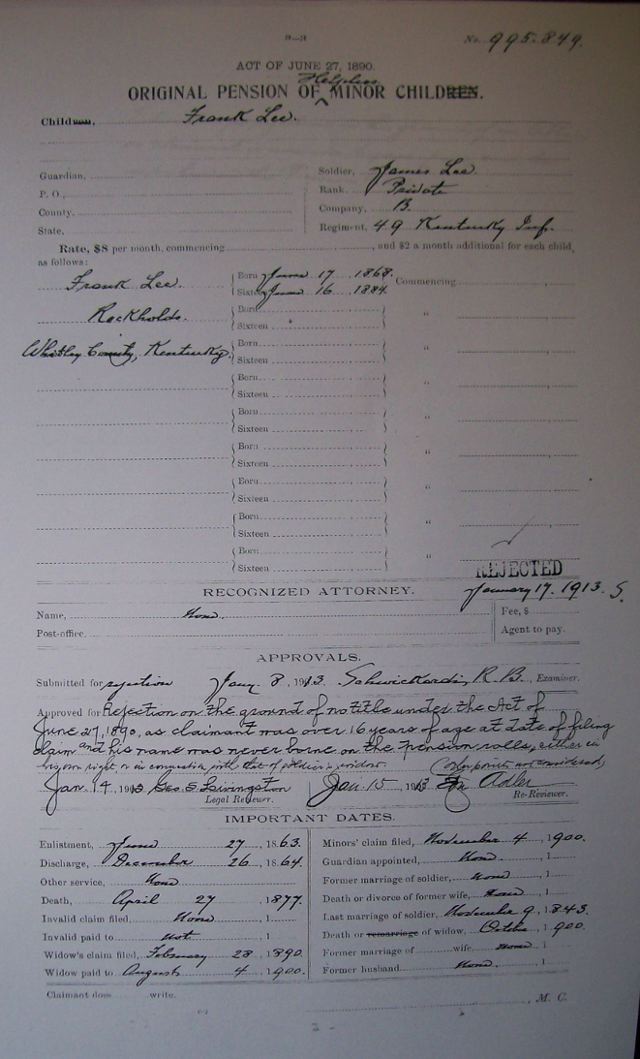 3—3
No. 995.849.
ACT OF JUNE 27, 1890.
Helpless
ORIGINAL PENSION OF MINOR CHILDREN.
Children, Frank Lee.
Guardian,
P. O.,
County,
State,
Soldier, James Lee
Rank, Private
Company, B.
Regiment, 49 Kentucky Inf.
Rate, $8 per month, commencing , and $2 a month additional for each child,
as follows:
Frank Lee. Born June 17 1868. Commencing
Sixteen June 16 1884.
Rockholds. Born
Sixteen
Whitley County, Kentucky. Born
Sixteen
Born
Sixteen
Born
Sixteen
Born
Sixteen
Born
Sixteen
Born
Sixteen
Born
Sixteen
REJECTED
January 17. 1913. S.
RECOGNIZED ATTORNEY.
Name, None. Fee, $
Post-office. Agent to pay.
APPROVALS.
Submitted for rejection Jany. 8, 1913. R. B., Examiner.
Approved for Rejection on the ground of no title under the Act of
June 27, 1890, as claimant was over 16 years of age at date of filing
claim and his name was never borne on the pension rolls, either in
his own right, or in connection with that of soldier's widow.
Jan. 14, 1913 Geo. S. Livingston Jan. 15, 1913 Adler
Legal Reviewer. Re-Reviewer.
IMPORTANT DATES.
Enlistment, June 27, 1863.
Discharge, December 26, 1864.
Other service, None
Death, April 27, 1877.
Invalid claim filed, None, 1
Invalid paid to not, 1
Widow's claim filed, February 28, 1890.
Widow paid to August 4, 1900.
Minors' claim filed, November 4, 1900.
Guardian appointed, None, 1
Former marriage of soldier, None, 1
Death or divorce of former wife, None, 1
Last marriage of soldier, November 9, 1843.
Death or remarriage of widow, , 1900.
Former marriage of wife, None, 1
Former husband, None, 1
Claimant does write.
, M. C.